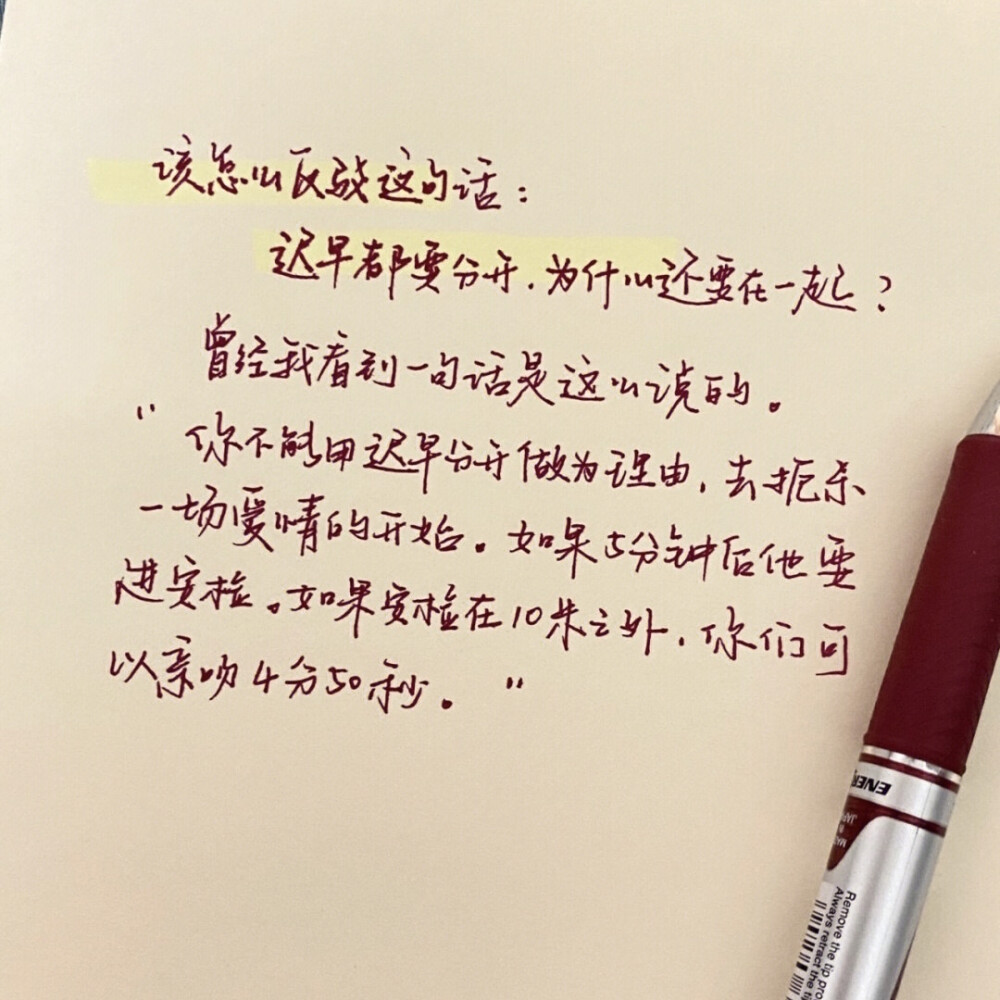 该怎么反驳这句话：
迟早都要分开，为什么还要在一起？
曾经我看到一句话是这么说的。
“你不能用迟早分开做为理由，去扼杀
一场爱情的开始。如果5分钟后他要
进安检。如果安检在10米之外，你们可
以亲吻4分50秒。”
ENER
MAD
JAP
Remove the tip pro
Always retract the ti